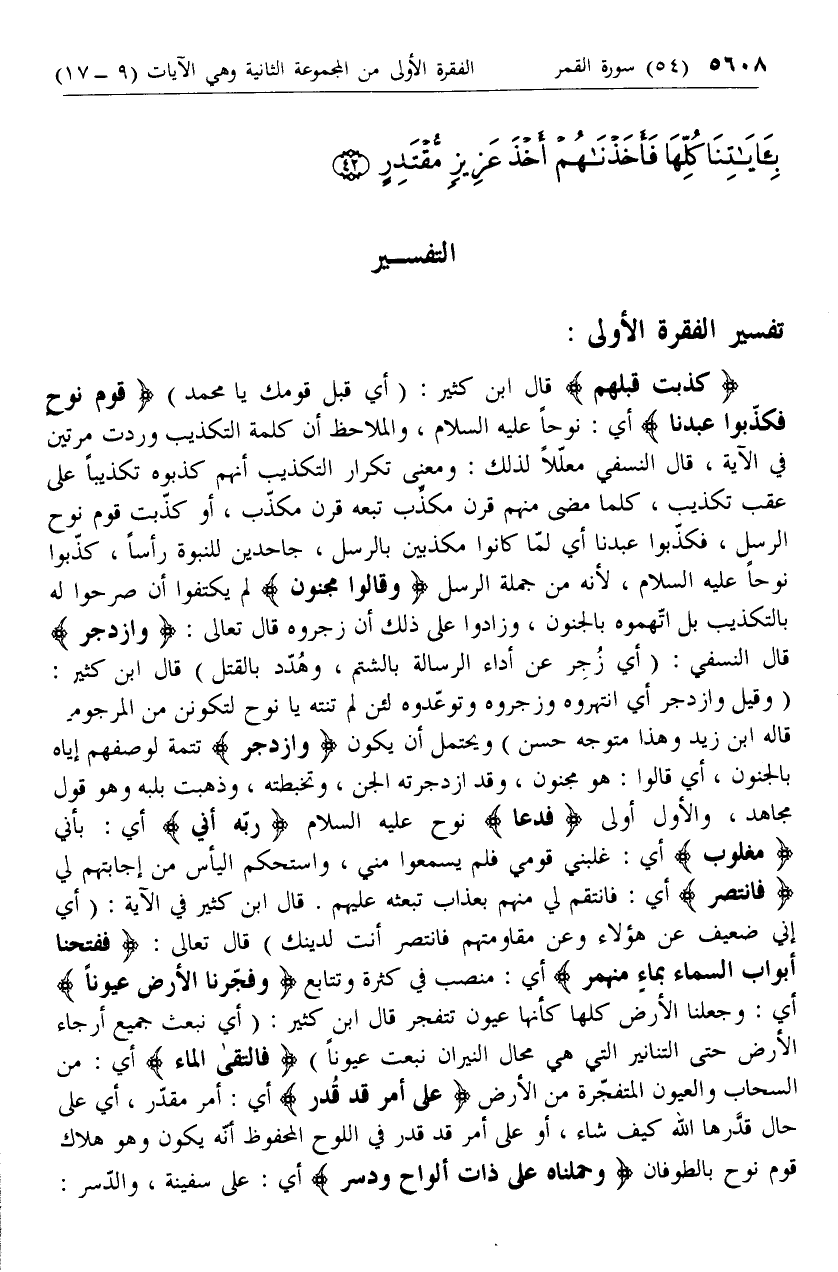 ٥٦٠٨ (٥٤) سورة القمر الفقرة الأولى من المجموعة الثانية وهي الآيات (٩ – ١٧)
بِـَٔايَـٰتِنَا كُلِّهَا فَأَخَذْنَـٰهُمْ أَخْذَ عَزِيزٍ مُّقْتَدِرٍ ٤٢
التفسير
تفسير الفقرة الأولى :
﴿ كذبت قبلهم ﴾ قال ابن كثير : ( أي قبل قومك يا محمد ) ﴿ قوم نوح
فكذّبوا عبدنا ﴾ أي : نوحاً عليه السلام ، والملاحظ أن كلمة التكذيب وردت مرتين
في الآية ، قال النسفي معلّلاً لذلك : ومعنى تكرار التكذيب أنهم كذبوه تكذيباً على
عقب تكذيب ، كلما مضى منهم قرن مكذّب تبعه قرن مكذّب ، أو كذّبت قوم نوح
الرسل ، فكذّبوا عبدنا أي لمّا كانوا مكذبين بالرسل ، جاحدين للنبوة رأساً ، كذّبوا
نوحاً عليه السلام ، لأنه من جملة الرسل ﴿ وقالوا مجنون ﴾ لم يكتفوا أن صرحوا له
بالتكذيب بل اتّهموه بالجنون ، وزادوا على ذلك أن زجروه قال تعالى : ﴿ وازدجر ﴾
قال النسفي : ( أي زُجِر عن أداء الرسالة بالشتم ، وهُدّد بالقتل ) قال ابن كثير :
( وقيل وازدجر أي انتهروه وزجروه وتوعّدوه لئن لم تنته يا نوح لتكونن من المرجومين
قاله ابن زيد وهذا متوجه حسن ) ويحتمل أن يكون ﴿ وازدجر ﴾ تتمة لوصفهم إياه
بالجنون ، أي قالوا : هو مجنون ، وقد ازدجرته الجن ، وتخبطته ، وذهبت بلبه وهو قول
مجاهد ، والأول أولى ﴿ فدعا ﴾ نوح عليه السلام ﴿ ربّه أني ﴾ أي : بأني
﴿ مغلوب ﴾ أي : غلبني قومي فلم يسمعوا مني ، واستحكم اليأس من إجابتهم لي
﴿ فانتصر ﴾ أي : فانتقم لي منهم بعذاب تبعثه عليهم . قال ابن كثير في الآية : ( أي
إني ضعيف عن هؤلاء وعن مقاومتهم فانتصر أنت لدينك ) قال تعالى : ﴿ ففتحنا
أبواب السماء بماءٍ منهمر ﴾ أي : منصب في كثرة وتتابع ﴿ وفجّرنا الأرض عيوناً ﴾
أي : وجعلنا الأرض كلها كأنها عيون تتفجر قال ابن كثير : ( أي نبعث جميع أرجاء
الأرض حتى التنانير التي هي محال النيران نبعت عيوناً ) ﴿ فالتقىٰ الماء ﴾ أي : من
السحاب والعيون المتفجّرة من الأرض ﴿ على أمر قد قُدر ﴾ أي : أمر مقدّر ، أي على
حال قدَّرها الله كيف شاء ، أو على أمر قد قدر في اللوح المحفوظ أنّه يكون وهو هلاك
قوم نوح بالطوفان ﴿ وحملناه على ذات ألواح ودسر ﴾ أي : على سفينة ، والدّسر :